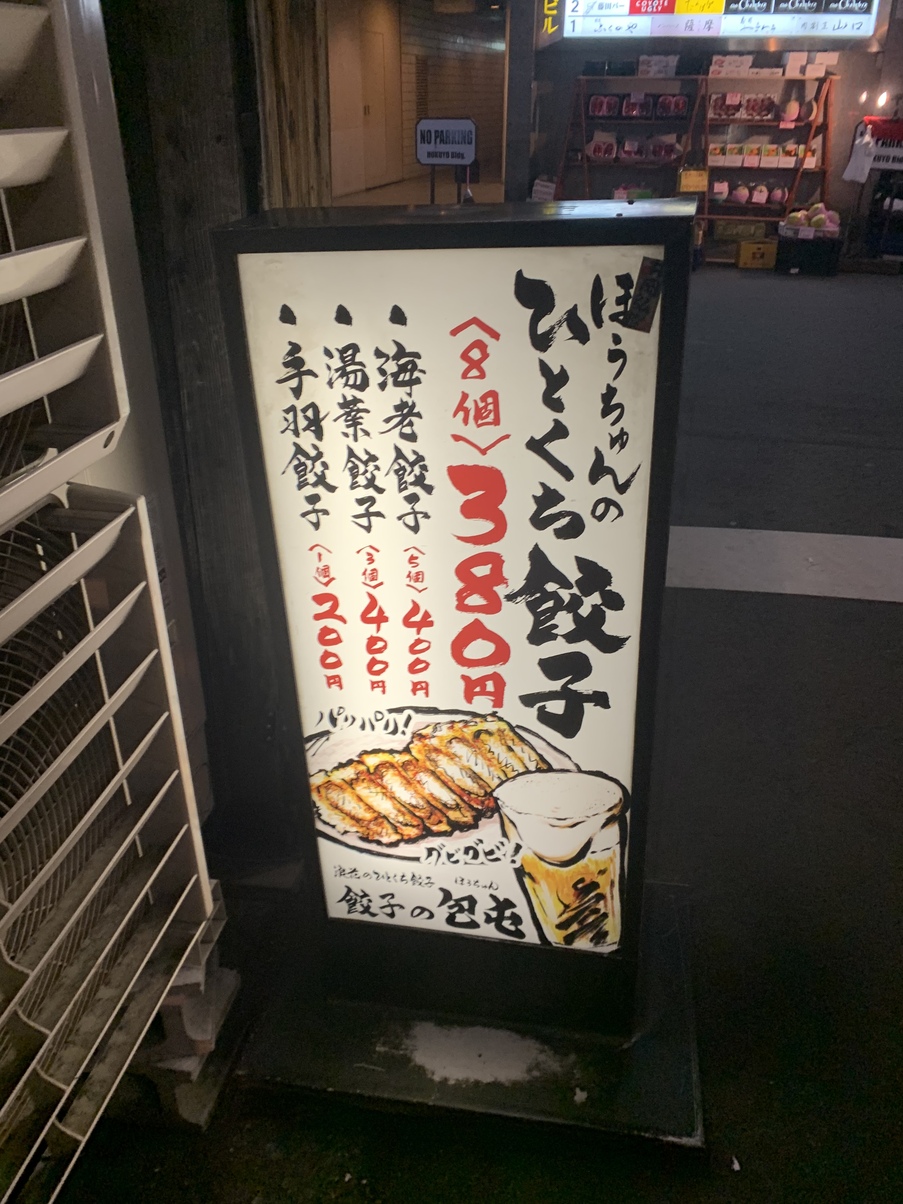 ほうちゅんの
ひとくち餃子
〈8個〉380円
海老餃子〈5個〉400円
湯葉餃子〈3個〉400円
手羽餃子〈1個〉200円
パリパリ!
グビグビ!!
浪花のひとくち餃子
餃子の包屯
ほうちゅん
NO PARKING
ビル
2
COYOTE
UGLY
1
薩摩
山口